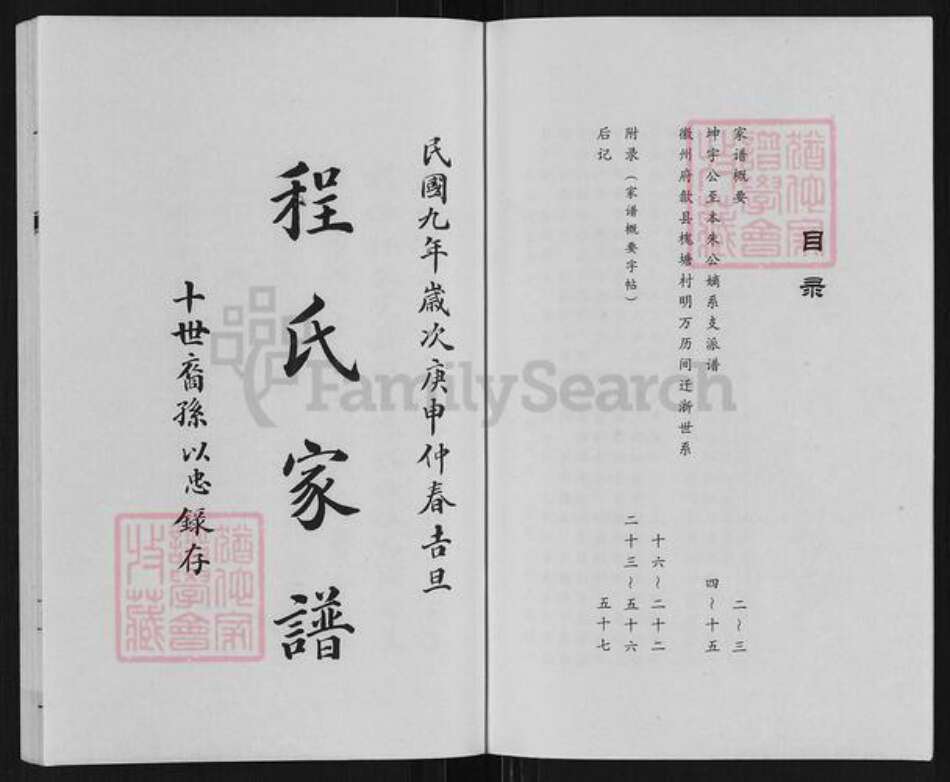 目录
家谱概要 二～三
坤宇公至本朱公嫡系支派谱 四～十五
徽州府歙县槐塘村明万历间迁浙世系 十六～二十二
附录（家谱概要字帖） 二十三～五十六
后记 五十七
民國九年歲次庚申仲春吉旦
程氏家譜
十世裔孫以忠錄存
FamilySearch